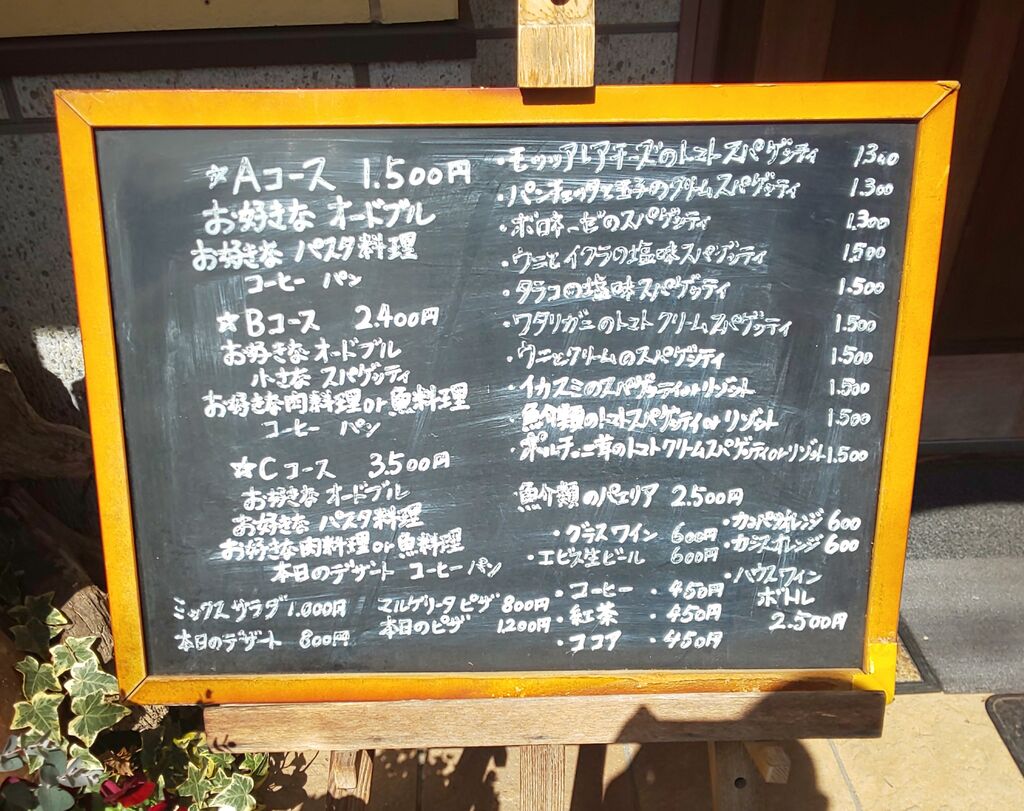 ☆Aコース 1.500円
お好きな オードブル
お好きな パスタ料理
コーヒー パン
☆Bコース 2.400円
お好きな オードブル
小さな スパゲッティ
お好きな肉料理or魚料理
コーヒー パン
☆Cコース 3.500円
お好きな オードブル
お好きな パスタ料理
お好きな肉料理or魚料理
本日のデザート コーヒー パン
ミックスサラダ 1.000円
本日のデザート 800円
マルゲリータピザ 800円
本日のピザ 1.200円
・モッツアレアチーズのトマトスパゲッティ 1.300
・パンチェッタと玉子のクリームスパゲッティ 1.300
・ボロネーゼのスパゲッティ 1.300
・ウニとイクラの塩味スパゲッティ 1.500
・タラコの塩味スパゲッティ 1.500
・ワタリガニのトマトクリームスパゲッティ 1.500
・ウニとクリームのスパゲッティ 1.500
・イカスミのスパゲッティorリゾット 1.500
・魚介類のトマトスパゲッティorリゾット 1.500
・ポルチーニ茸のトマトクリームスパゲッティorリゾット 1.500
魚介類のパエリア 2.500円
・グラスワイン 600円
・エビス生ビール 600円
・コーヒー ・450円
・紅茶 ・450円
・ココア ・450円
・カンパリオレンジ 600
・カシスオレンジ 600
・ハウスワイン
ボトル
2.500円